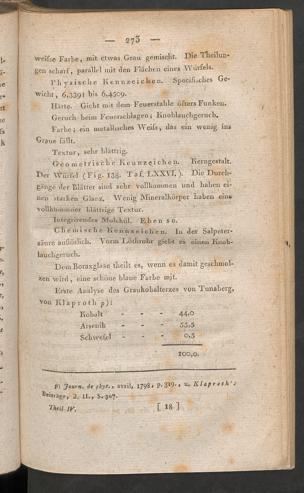 — 275 —
weiſse Farbe, mit etwas Grau gemischt. Die Theilun-
gen scharf, parallel mit den Flächen eines Würfels.
Physische Kennzeichen. Specifisches Ge-
wicht, 6,3391 bis 6,4509.
Härte. Giebt mit dem Feuerstahle öfters Funken.
Geruch beim Feuerschlagen; Knoblauchgeruch.
Farbe; ein metallisches Weiſs, das ein wenig ins
Graue fällt.
Textur, sehr blättrig.
Geometrische Kennzeichen. Kerngestalt.
Der Würfel (Fig. 138. Taf. LXXVI.). Die Durch-
gänge der Blätter sind sehr vollkommen und haben ei-
nen starken Glanz. Wenig Mineralkörper haben eine
vollkommner blättrige Textur.
Integrirendes Molekül. Eben so.
Chemische Kennzeichen. In der Salpeter-
säure auflöslich. Vorm Löthrohr giebt es einen Knob-
lauchgeruch.
Dem Boraxglase theilt es, wenn es damit geschmol-
zen wird, eine schöne blaue Farbe mit.
Erste Analyse des Graukobalterzes von Tunaberg,
von Klaproth p):
Kobalt - - - 44,0
Arsenik - - - 55,5
Schwefel - - 0,5
100,0.
p) Journ. de phys., avril, 1798, p. 319., u. Klaproth's
Beiträge, 2. B., S. 307.
Theil IV. [ 18 ]